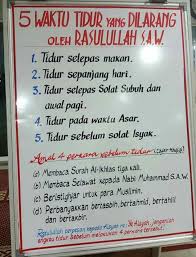 5 WAKTU TIDUR YANG DILARANG
OLEH RASULULLAH S.A.W.
1. Tidur selepas makan.
2. Tidur sepanjang hari.
3. Tidur selepas Solat Subuh dan
awal pagi.
4. Tidur pada waktu Asar.
5. Tidur sebelum solat Isyak.
Amal 4 perkara sebelum tidur
(a) Membaca Surah Al-Ikhlas tiga kali.
(b) Membaca Selawat kepada Nabi Muhammad S.A.W.
(c) Beristighfar untuk para Muslimin.
(d) Perbanyakkan bertasbih, bertahmid, bertahlil
dan bertakbir.
Rasulullah berpesan kepada Aisyah "Ya Aisyah, janganlah
engkau tidur sebelum melakukan 4 perkara tersebut."